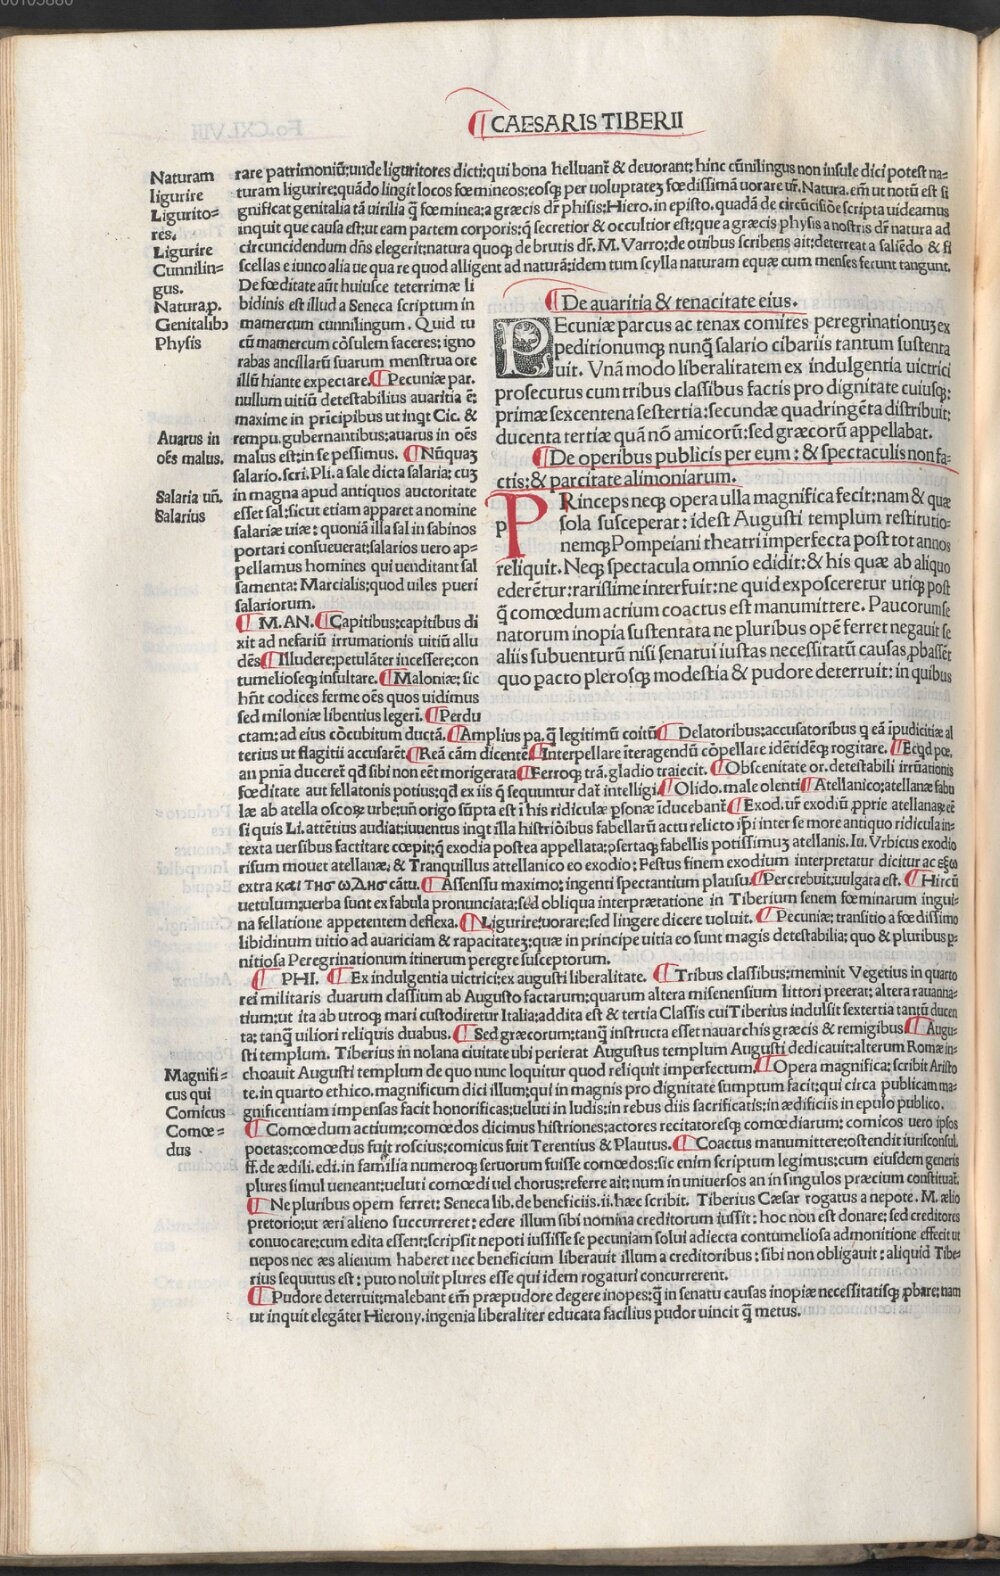 00103880
¶CAESARIS TIBERII
Naturam
ligurire
Ligurito=
res.
Ligurire
Cunnilin=
gus.
Natura.p.
Genitalibꝰ
Physis
rare patrimoniũ:unde liguritores dicti:qui bona helluant̃ & deuorant: hinc cũnilingus non insule dici potest na-
turam ligurire:quãdo lingit locos fœmineos:eosqꝫ per uoluptateꝫ fœdissimã uorare ur̃. Natura.em̃ ut notũ est si
gnificat genitalia tã uirilia q̃ fœminea:a græcis dr̃ phisis:Hiero.in episto.quadã de circũcisiõe scripta uideamus
inquit que causa est:ut eam partem corporis:q̃ secretior & occultior est:que a græcis physis a nostris dr̃ natura ad
circuncidendum dñs elegerit:natura quoqꝫ de brutis dr̃. M. Varro:de ouibus scribens ait:deterreat a salsẽdo & si
scellas e iunco alia ue qua re quod alligent ad naturã:idem tum scylla naturam equæ cum menses ferunt tangunt.
De fœditate aũt huiusce teterrimæ li
bidinis est illud a Seneca scriptum in
mamercum cunnilingum. Quid tu
cũ mamercum cõsulem faceres: igno
rabas ancillarũ suarum menstrua ore
illũ hiante expectare.¶Pecuniæ par.
nullum uitiũ detestabilius auaritia ẽ:
maxime in prĩcipibus ut inqt Cic. &
rempu.gubernantibus:auarus in oẽs
malus est:in se pessimus. ¶Nũquaꝫ
salario.scri.Pli.a sale dicta salaria: cuꝫ
in magna apud antiquos auctoritate
esset sal:sicut etiam apparet a nomine
salariæ uiæ: quoniã illa sal in sabinos
portari consueuerat:salarios uero ap-
pellamus homines qui uenditant sal
samenta: Marcialis:quod uiles pueri
salariorum.
Auarus in
oẽs malus.
Salaria uñ.
Salarius
¶De auaritia & tenacitate eius.
PEcuniæ parcus ac tenax comites peregrinationuꝫ ex
peditionumqꝫ nunq̃ salario cibariis tantum sustenta
uit. Vnã modo liberalitatem ex indulgentia uictrici
prosecutus cum tribus classibus factis pro dignitate cuiusqꝫ:
primæ sexcentena sestertia:secundæ quadringẽta distribuit:
ducenta tertiæ quã nõ amicorũ:sed græcorũ appellabat.
¶De operibus publicis per eum: & spectaculis non fa-
ctis:& parcitate alimoniarum.
PRinceps neqꝫ opera ulla magnifica fecit:nam & quæ
sola susceperat: idest Augusti templum restitutio-
nemqꝫ Pompeiani theatri imperfecta post tot annos
reliquit. Neqꝫ spectacula omnio edidit:& his quæ ab aliquo
ederẽtur:rarissime interfuit:ne quid exposceretur utiqꝫ post
q̃ comœdum actium coactus est manumittere. Paucorum se
natorum inopia sustentata ne pluribus opẽ ferret negauit se
aliis subuenturũ nisi senatui iustas necessitatũ causas ꝓbassẽt
quo pacto plerosqꝫ modestia & pudore deterruit: in quibus
¶ M. AN. ¶Capitibus:capitibus di
xit ad nefariũ irrumationis uitiũ allu
dẽs¶Illudere:petulãter incessere:con
tumelioseqꝫ insultare. ¶Maloniæ: sic
hñt codices ferme oẽs quos uidimus
sed miloniæ libentius legeri. ¶Perdu
ctam:ad eius cõcubitum ductã. ¶Amplius pa.q̃ legitimũ coitũ¶ Delatoribus:accusatoribus q eã ĩpudicitiæ al
terius ut flagitii accusarẽt¶Reã cãm dicentẽ¶Interpellare:iteragendũ cõpellare idẽtidẽqꝫ rogitare. ¶Ecqd pœ.
an pnĩa duceret qd sibi non eẽt morigerata¶Ferroqꝫ trã.gladio traiecit. ¶Obscenitate or.detestabili irrũationis
fœditate aut fellatonis potius:qd ex iis q̃ sequuntur dat̃ intelligi.¶Olido.male olenti¶Atellanico:atellanæ fabu
læ ab atella oscoꝝ urbe:uñ origo sũpta est ĩ his ridiculæ ꝑsonæ ĩducebant̃¶Exod.ur̃ exodiũ ꝓprie atellanæ:eẽ
si quis Li.attẽtius audiat:iuuentus inqt illa histriõibus fabellarũ actu relicto ip̃i inter se more antiquo ridicula in-
texta uersibus factitare cœpit:q̃ exodia postea appellata:ꝓsertaqꝫ fabellis potissimuꝫ atellanis. Iu. Vrbicus exodio
risum mouet atellanæ: & Tranquillus attellanico eo exodio: Festus finem exodium interpretatur dicitur ac εξω
extra και της ωδης cãtu. ¶Assenssu maximo:ingenti spectantium plausu.¶Percrebuit:uulgata est. ¶Hircũ
uetulum:uerba sunt ex fabula pronunciata:sed obliqua interprætatione in Tiberium senem fœminarum ingui-
na fellatione appetentem deflexa. ¶Ligurire:uorare:sed lingere dicere uoluit. ¶Pecuniæ:transitio a fœdissimo
libidinum uitio ad auariciam & rapacitateꝫ:quæ in principe uitia eo sunt magis detestabilia: quo & pluribus ꝑ-
nitiosa Peregrinationum itinerum peregre susceptorum.
¶ PHI. ¶Ex indulgentia uictrici:ex augusti liberalitate. ¶Tribus classibus:meminit Vegetius in quarto
rei militaris duarum classium ab Augusto factarum:quarum altera misenensium littori preerat: altera rauanna-
tium:ut ita ab utroqꝫ mari custodiretur Italia:addita est & tertia Classis cui Tiberius indulsit sextertia tantũ ducen
ta: tanq̃ uiliori reliquis duabus. ¶Sed græcorum:tanq̃ instructa esset nauarchis græcis & remigibus¶Augu-
sti templum. Tiberius in nolana ciuitate ubi perierat Augustus templum Augusti dedicauit:alterum Romæ in-
choauit Augusti templum de quo nunc loquitur quod reliquit imperfectum.¶Opera magnifica: scribit Aristo
te.in quarto ethico.magnificum dici illum:qui in magnis pro dignitate sumptum facit:qui circa publicam ma-
gnificentiam impensas facit honorificas:ueluti in ludis:in rebus diis sacrificatis:in ædificiis in epulo publico.
¶Comœdum actium:comœdos dicimus histriones:actores recitatoresqꝫ comœdiarum: comicos uero ipsos
poetas:comœdus fuit roscius:comicus fuit Terentius & Plautus. ¶Coactus manumittere:ostendit iurisconsul.
ff.de ædili.edi.in familia numeroqꝫ seruorum fuisse comœdos:sic enim scriptum legimus:cum eiusdem generis
plures simul ueneant:ueluti comœdi uel chorus:referre ait: num in uniuersos an in singulos præcium constituat̃.
¶Ne pluribus opem ferret: Seneca lib.de beneficiis.ii.hæc scribit. Tiberius Cæsar rogatus a nepote. M. ælio
pretorio:ut æri alieno succurreret: edere illum sibi nomina creditorum iussit: hoc non est donare: sed creditores
conuocare:cum edita essent:scripsit nepoti iussisse se pecuniam solui adiecta contumeliosa admonitione effecit ut
nepos nec æs alienum haberet nec beneficium liberauit illum a creditoribus: sibi non obligauit: aliquid Tibe-
rius sequutus est: puto noluit plures esse qui idem rogaturi concurrerent.
¶Pudore deterruit:malebant em̃ præpudore degere inopes:q̃ in senatu causas inopiæ necessitatisqꝫ ꝓbare:nam
ut inquit elegãter Hierony.ingenia liberaliter educata facilius pudor uincit q̃ metus.
Magnifi=
cus qui
Comicus
Comœ=
dus